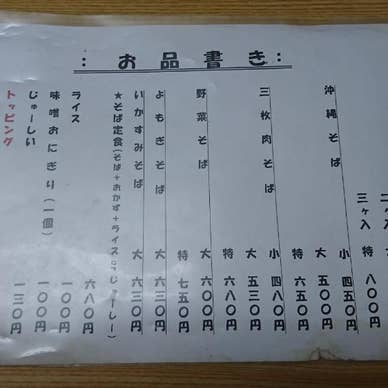 ：お品書き：
三ヶ入
特 八〇〇円
沖縄そば
小 四五〇円
大 五〇〇円
特 六五〇円
三枚肉そば
小 四八〇円
大 五三〇円
特 六八〇円
野菜そば
大 六〇〇円
特 七五〇円
よもぎそば
大 六三〇円
いかすみそば
大 六三〇円
★そば定食(そば+おかず+ライスorじゅーしー)
六八〇円
ライス
一〇〇円
味噌おにぎり(一個)
一〇〇円
じゅーしい
一三〇円
トッピング